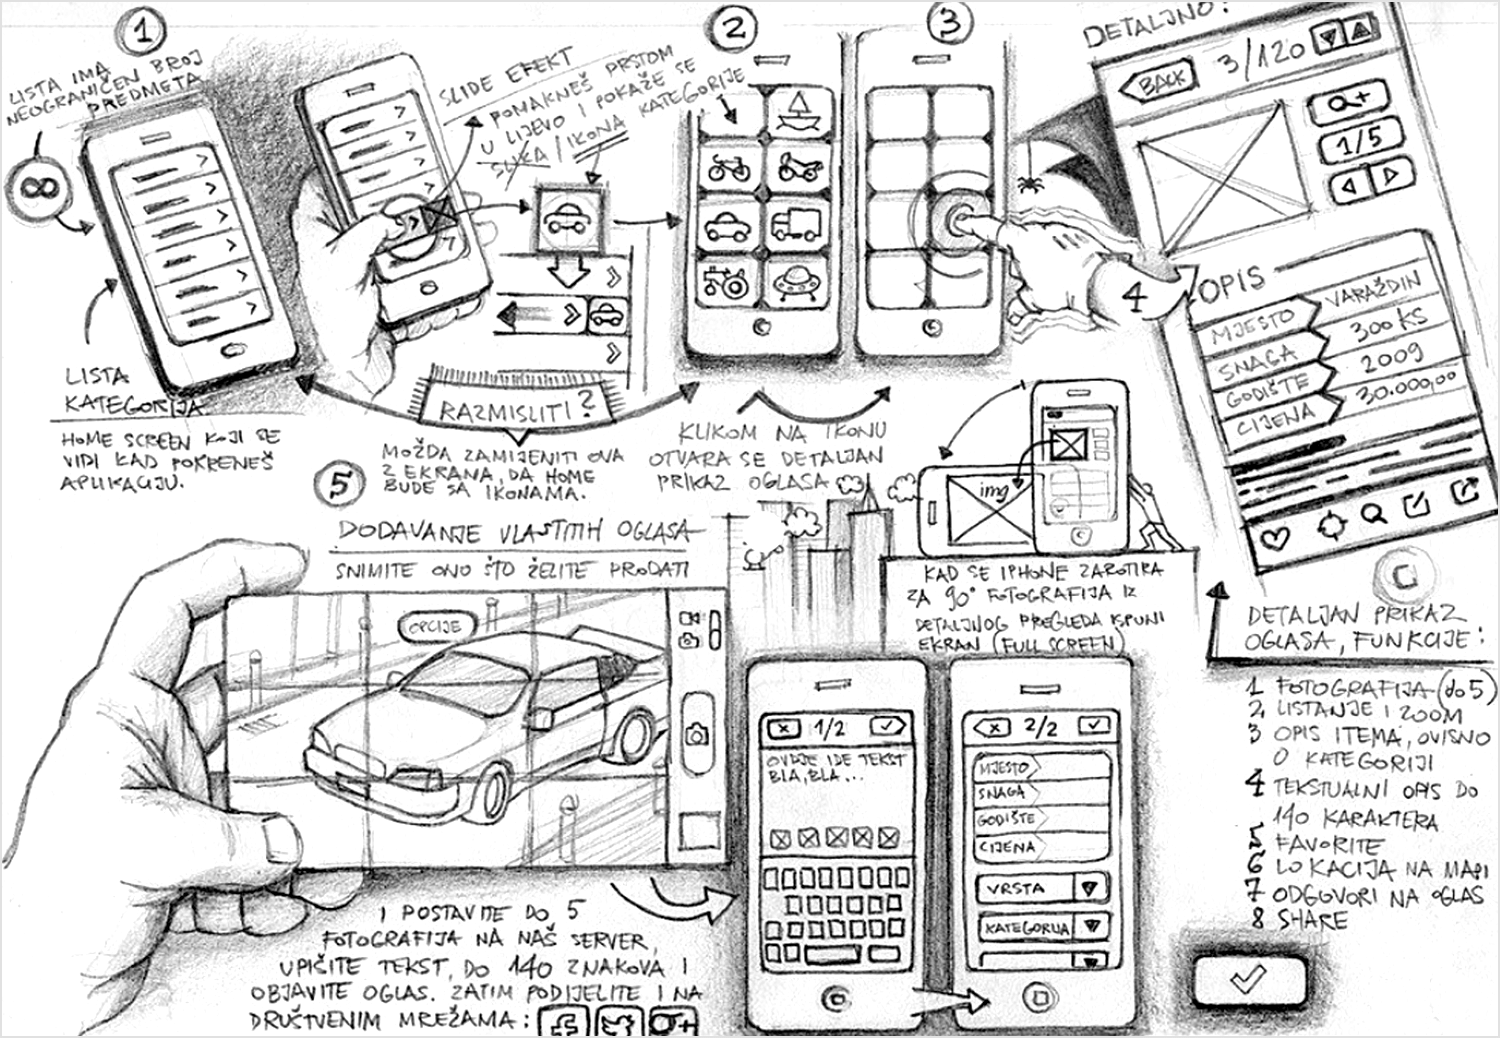 1
LISTA IMA
NEOGRANIČEN BROJ
PREDMETA
∞
LISTA
KATEGORIJA
HOME SCREEN KOJI SE
VIDI KAD POKRENEŠ
APLIKACIJU.
SLIDE EFEKT
POMAKNEŠ PRSTOM
U LIJEVO I POKAŽE SE
SLIKA / IKONA KATEGORIJE
RAZMISLITI?
MOŽDA ZAMIJENITI OVA
2 EKRANA, DA HOME
BUDE SA IKONAMA.
2
3
KLIKOM NA IKONU
OTVARA SE DETALJAN
PRIKAZ OGLASA
4
DETALJNO:
BACK
3/120
+
1/5
OPIS
MJESTO VARAŽDIN
SNAGA 300 KS
GODIŠTE 2009
CIJENA 30.000,00
img
KAD SE IPHONE ZAROTIRA
ZA 90° FOTOGRAFIJA IZ
DETALJNOG PREGLEDA ISPUNI
EKRAN (FULL SCREEN)
DETALJAN PRIKAZ
OGLASA, FUNKCIJE:
1 FOTOGRAFIJA (do 5)
2 LISTANJE I ZOOM
3 OPIS ITEMA, OVISNO
O KATEGORIJI
4 TEKSTUALNI OPIS DO
140 KARAKTERA
5 FAVORITE
6 LOKACIJA NA MAPI
7 ODGOVORI NA OGLAS
8 SHARE
5
DODAVANJE VLASTITIH OGLASA
SNIMITE ONO ŠTO ŽELITE PRODATI
OPCIJE
I POSTAVITE DO 5
FOTOGRAFIJA NA NAŠ SERVER,
UPIŠITE TEKST, DO 140 ZNAKOVA I
OBJAVITE OGLAS. ZATIM PODIJELITE I NA
DRUŠTVENIM MREŽAMA:
f
g+
x 1/2
OVDJE IDE TEKST
BLA, BLA...
x 2/2
MJESTO
SNAGA
GODIŠTE
CIJENA
VRSTA
KATEGORIJA